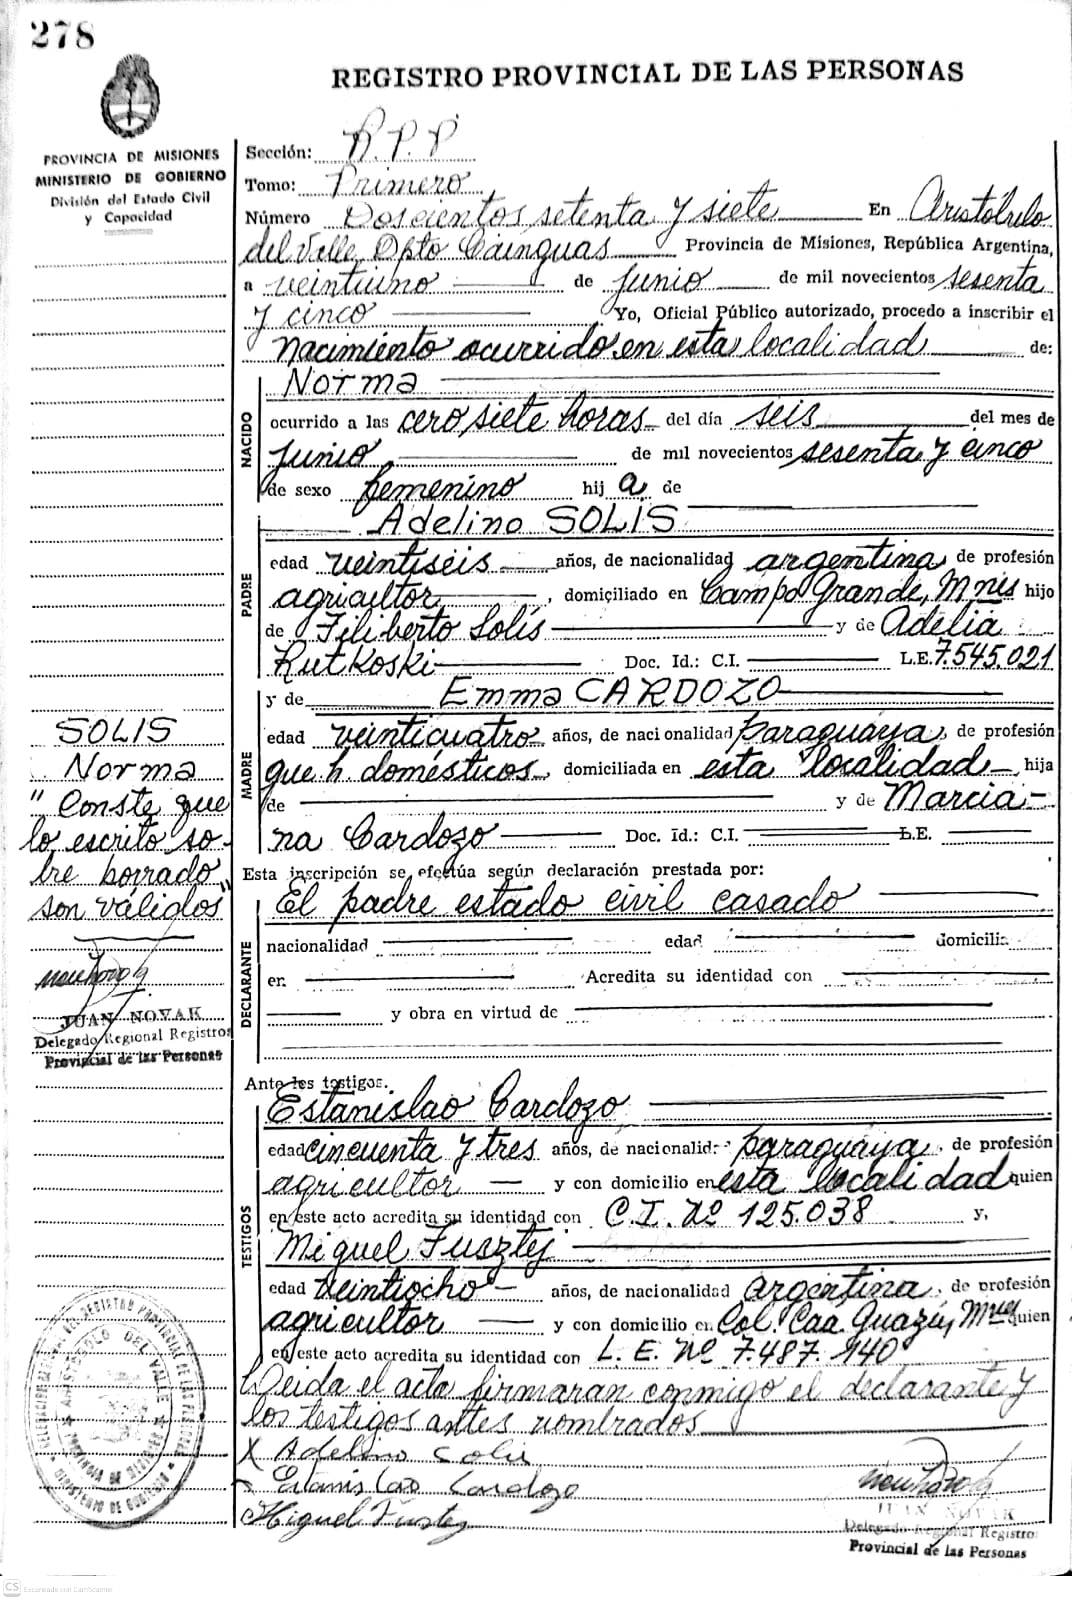 278
REGISTRO PROVINCIAL DE LAS PERSONAS
PROVINCIA DE MISIONES
MINISTERIO DE GOBIERNO
División del Estado Civil
y Capacidad
Sección: R.P.P
Tomo: Primero
Número Doscientos setenta y siete En Aristóbulo
del Valle Dpto Cainguas Provincia de Misiones, República Argentina,
a veintiuno de junio de mil novecientos sesenta
y cinco Yo, Oficial Público autorizado, procedo a inscribir el
nacimiento ocurrido en esta localidad de:
NACIDO
Norma
ocurrido a las cero siete horas del día seis del mes de
junio de mil novecientos sesenta y cinco
de sexo femenino hij a de
PADRE
Adelino SOLIS
edad veintiseis años, de nacionalidad argentina de profesión
agricultor, domiciliado en Campo Grande, Mnes hijo
de Filiberto Solís y de Adelia
Rutkoski Doc. Id.: C.I. L.E. 7.545.021
MADRE
y de Emma CARDOZO
edad veinticuatro años, de nacionalidad paraguaya, de profesión
que h. domésticos, domiciliada en esta localidad hija
de y de Marcia-
na Cardozo Doc. Id.: C.I. L.E.
SOLIS
Norma
" Conste que
lo escrito so-
bre borrado
son válidos"
JUAN NOVAK
Delegado Regional Registro
Provincial de las Personas
Esta inscripción se efectúa según declaración prestada por:
DECLARANTE
El padre estado civil casado
nacionalidad edad domicili
en Acredita su identidad con
y obra en virtud de
Ante los testigos.
TESTIGOS
Estanislao Cardozo
edad cincuenta y tres años, de nacionalid paraguaya de profesión
agricultor y con domicilio en esta localidad quien
en este acto acredita su identidad con C.I. Nº 125.038 y,
Miguel Fusztej
edad veintiocho años, de nacionalidad argentina, de profesión
agricultor y con domicilio en Col. Caa Guazú, Mnes quien
en este acto acredita su identidad con L. E. Nº 7.487.140
Leida el acta firmaran conmigo el declarante y
los testigos antes nombrados
X Adelino Solis
Estanislao Cardozo
Miguel Fustej
JUAN NOVAK
Delegado Regional Registro
Provincial de las Personas
DELEGACION REGIONAL DEL REGISTRO PROVINCIAL DE LAS PERSONAS
ARISTOBULO DEL VALLE
PROVINCIA DE MISIONES
MINISTERIO DE GOBIERNO
CS Escaneado con CamScanner